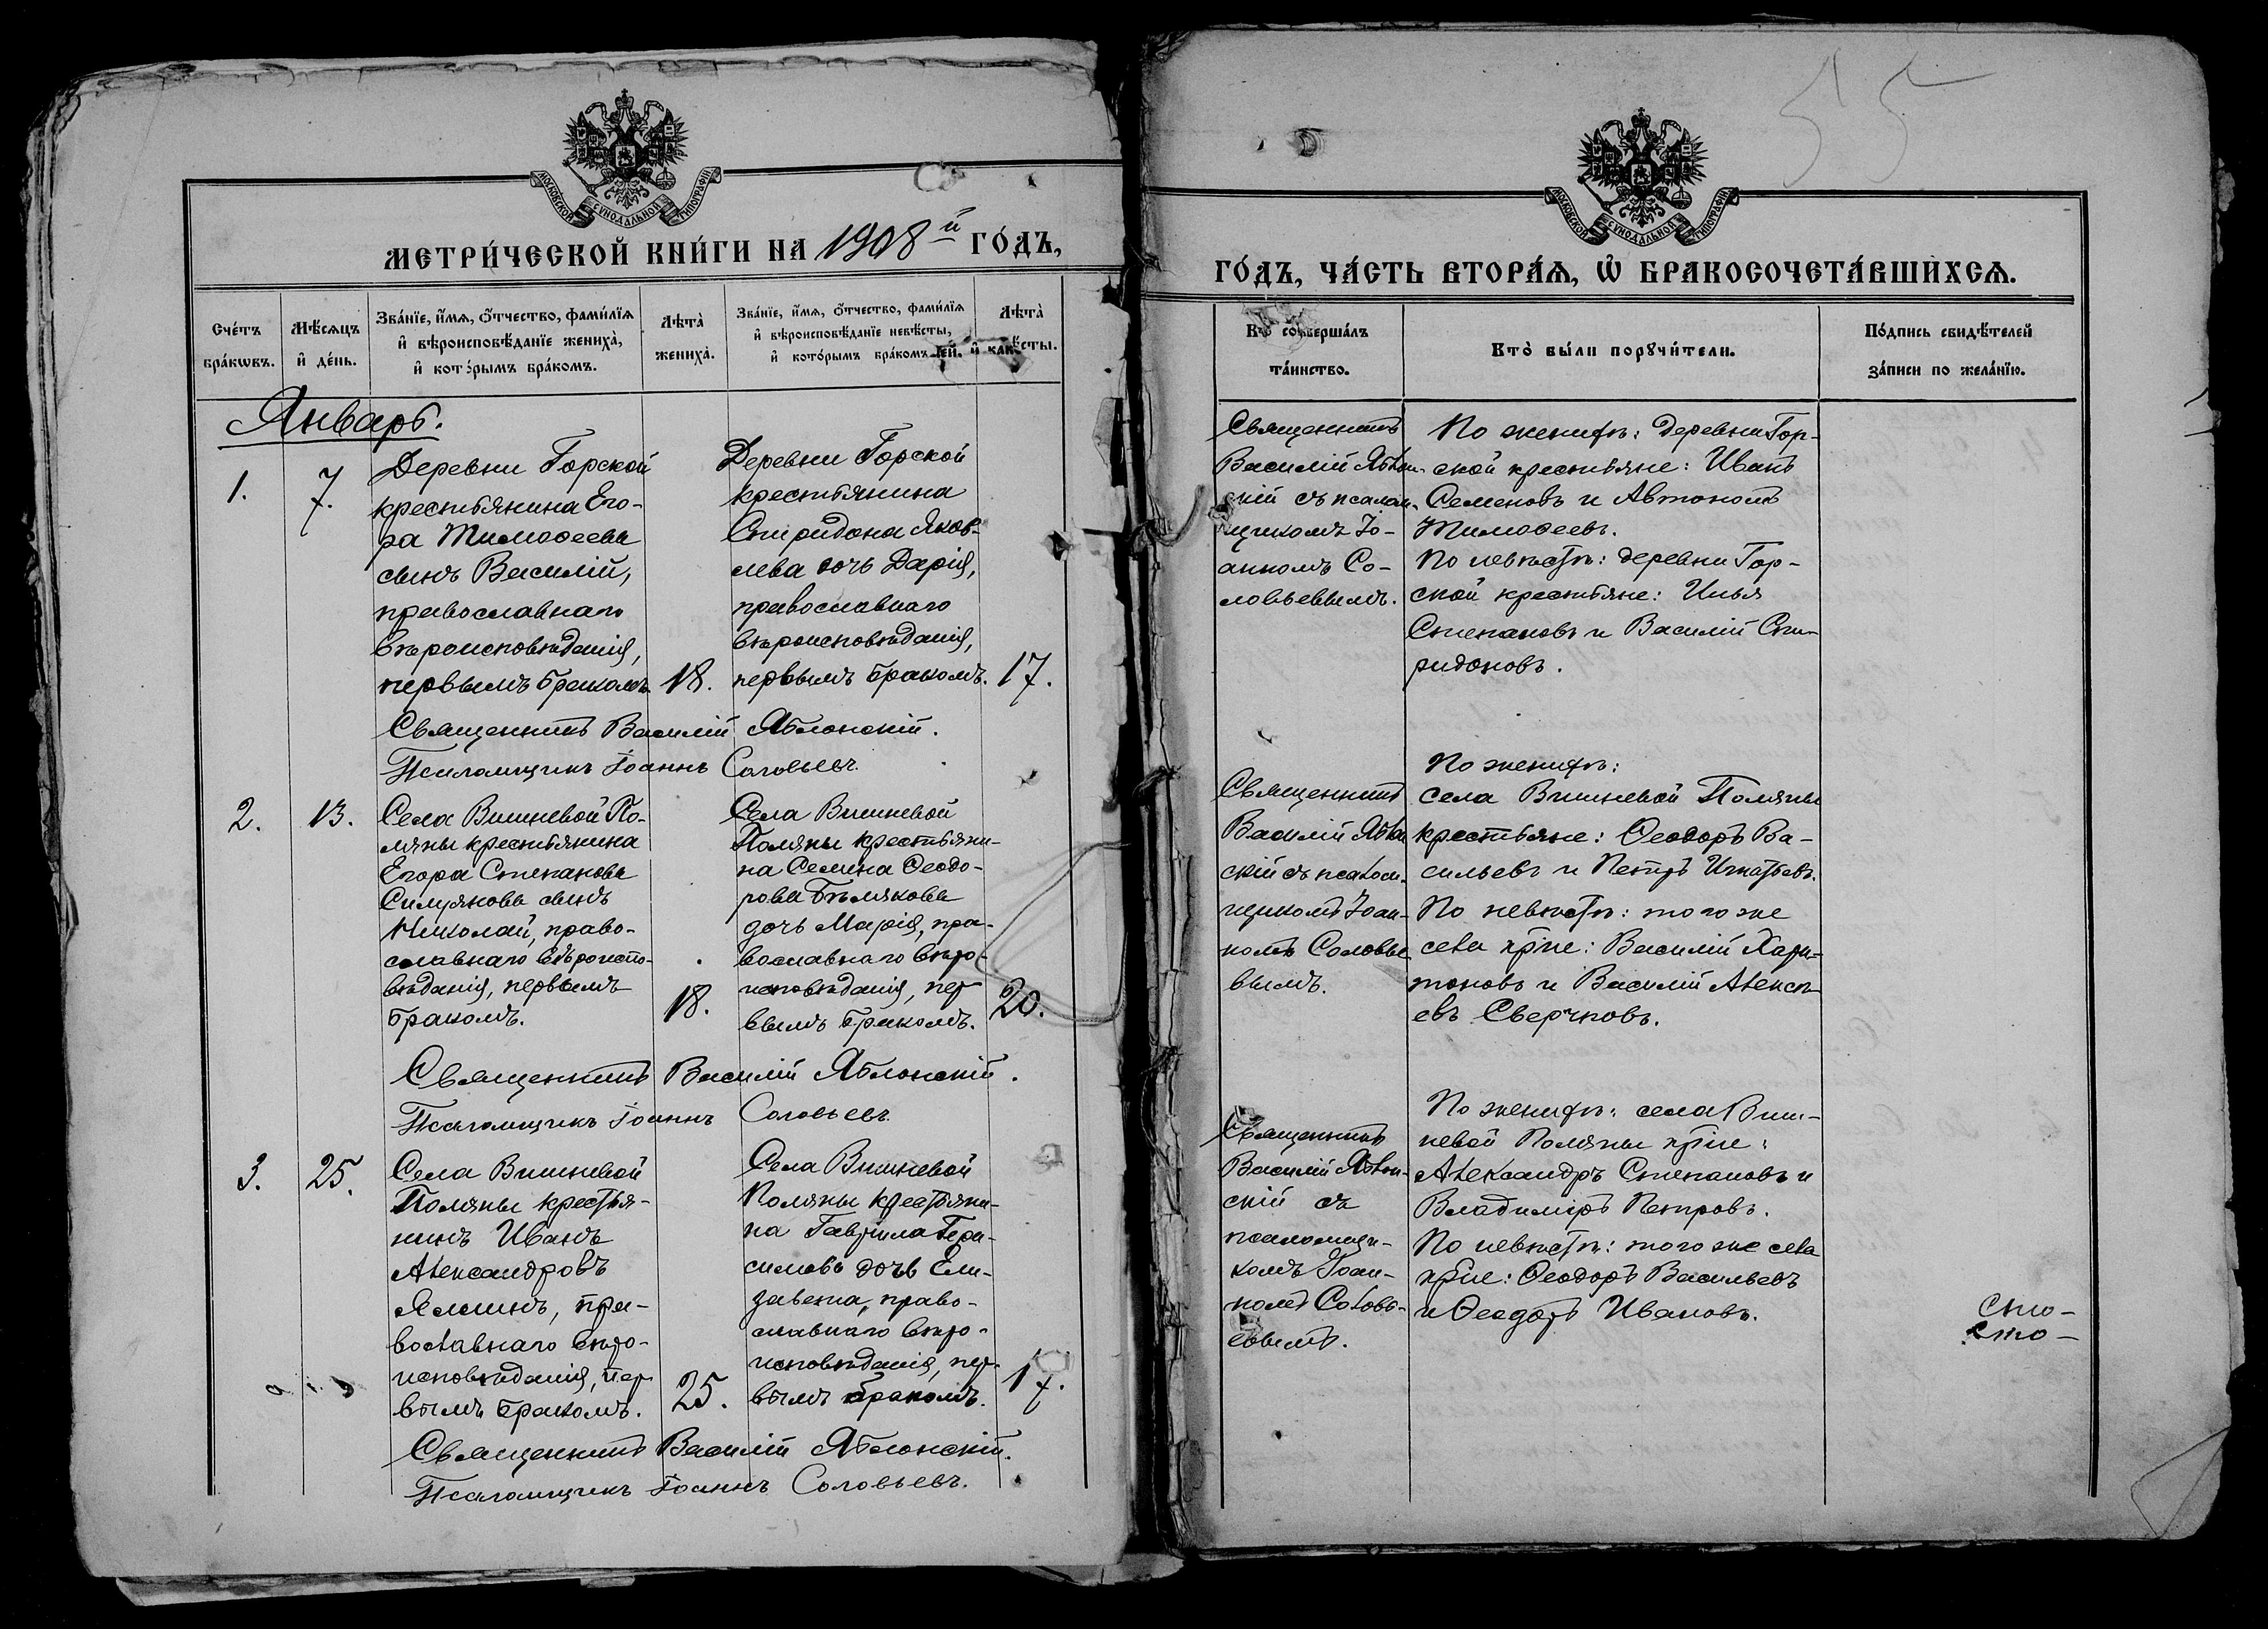 МОСКОВСКОЙ СѴНОДАЛЬНОЙ ТИПОГРАФІИ
МЕТРИ́ЧЕСКОЙ КНИ́ГИ НА 1908й ГО́ДЪ,
Сче́тъ бра́кѡвъ.
Мѣ́сяцъ и҆ де́нь.
Зва́нїе, и҆́мя, ѻ҆́тчество, фами́лїя
и҆ вѣроисповѣ́данїе жениха̀,
и҆ кото́рымъ бра́комъ.
Лѣта̀ жениха̀.
Зва́нїе, и҆́мя, ѻ҆́тчество, фами́лїя
и҆ вѣроисповѣ́данїе невѣ́сты,
и҆ кото́рымъ бра́комъ
Лѣта̀
Январь.
1.
7.
Деревни Горской
крестьянина Его-
ра Тимоѳеева
сынъ Василій,
православнаго
вѣроисповѣданія,
первымъ бракомъ
18.
Деревни Горской
крестьянина
Спиридона Яков-
лева дочь Дарія,
православнаго
вѣроисповѣданія,
первымъ бракомъ.
17.
Священникъ Василій Яблонскій.
Псаломщикъ Іоаннъ Соловьевъ.
2.
13.
Села Вишневой По-
ляны крестьянина
Егора Степанова
Силуянова сынъ
Николай, право-
славнаго вѣроиспо-
вѣданія, первымъ
бракомъ.
18.
Села Вишневой
Поляны крестьяни-
на Семена Ѳеодо-
рова Бѣлякова
дочь Марія, пра-
вославнаго вѣро-
исповѣданія, пер-
вымъ бракомъ.
20.
Священникъ Василій Яблонскій.
Псаломщикъ Іоаннъ Соловьевъ.
3.
25.
Села Вишневой
Поляны крестья-
нинъ Иванъ
Александровъ
Ялминъ, пра-
вославнаго вѣро-
исповѣданія, пер-
вымъ бракомъ.
25.
Села Вишневой
Поляны крестьяни-
на Гавріила Гера-
симова дочь Ели-
завета, право-
славнаго вѣро-
исповѣданія, пер-
вымъ бракомъ.
17.
Священникъ Василій Яблонскій.
Псаломщикъ Іоаннъ Соловьевъ.
55
МОСКОВСКОЙ СѴНОДАЛЬНОЙ ТИПОГРАФІИ
ГО́ДЪ, ЧА́СТЬ ВТОРА́Я, Ѡ҆ БРАКОСОЧЕТА́ВШИХСЯ.
Кто̀ соверша́лъ
та́инство.
Кто̀ бы́ли порꙋчи́тели.
По́дпись свидѣ́телей
за́писи по жела́нїю.
Священникъ
Василій Яблон-
скій съ псалом-
щикомъ Іо-
анномъ Со-
ловьевымъ.
По женихѣ: деревни Гор-
ской крестьяне: Иванъ
Семеновъ и Автономъ
Тимоѳеевъ.
По невѣстѣ: деревни Гор-
ской крестьяне: Илья
Степановъ и Василій Спи-
ридоновъ.
Священникъ
Василій Яблон
скій съ псалом-
щикомъ Іоан-
номъ Соловье
вымъ.
По женихѣ:
села Вишневой Поляны
крестьяне: Ѳеодоръ Ва-
сильевъ и Петръ Игнатьевъ.
По невѣстѣ: того же
села кр̃не: Василій Хари-
тоновъ и Василій Алексѣ-
евъ Сверчковъ.
Священникъ
Василій Яблон-
скій съ
псаломщи-
комъ Іоан-
номъ Соловь-
евымъ.
По женихѣ: села Виш-
невой Поляны кр̃не:
Александръ Степановъ и
Владиміръ Петровъ.
По невѣстѣ: того же села
кр̃не: Ѳеодоръ Васильевъ
и Ѳеодотъ Ивановъ.